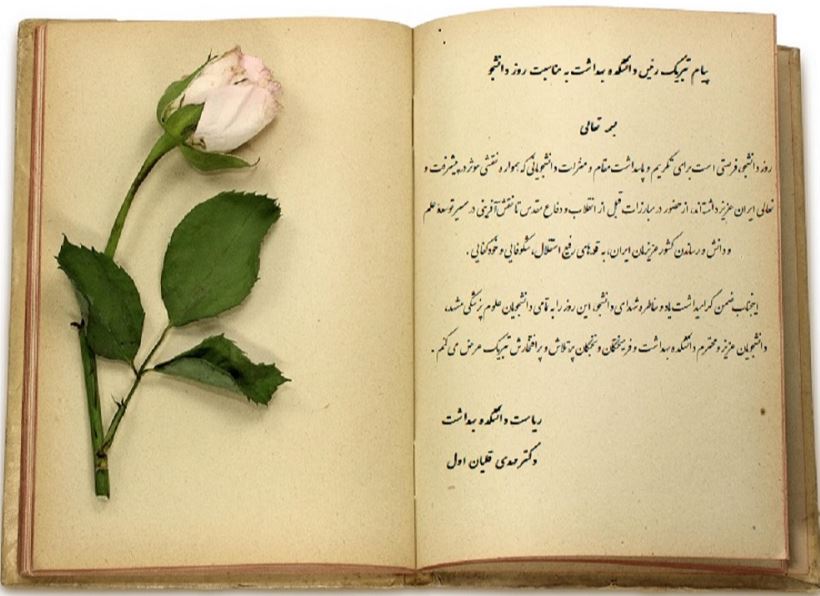 پیام تبریک رئیس دانشکده بهداشت به مناسبت روز دانشجو
بسمه تعالی
روز دانشجو، فرصتی است برای تکریم و پاسداشت مقام و منزلت دانشجویانی که همواره نقشی موثر در پیشرفت و
تعالی ایران عزیز داشته‌اند، از حضور در مبارزات قبل از انقلاب و دفاع مقدس تا نقش آفرینی در مسیر توسعهٔ علم
و دانش و رساندن کشور عزیزمان ایران، به قله‌های رفیع استقلال، شکوفایی و خودکفایی.
اینجانب ضمن گرامیداشت یاد و خاطره شهدای دانشجو، این روز را به تمامی دانشجویان علوم پزشکی مشهد،
دانشجویان عزیز و محترم دانشکده بهداشت و فرهیختگان و نخبگان پرتلاش و پرافتخارش تبریک عرض می کنم.
ریاست دانشکده بهداشت
دکتر مهدی قلیان اول